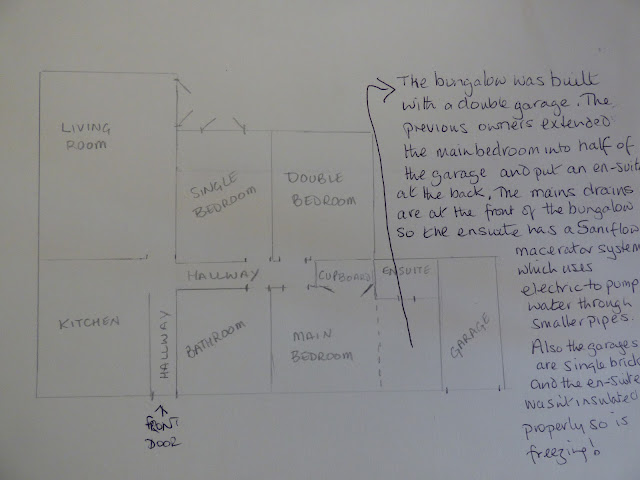 LIVING
ROOM
SINGLE
BEDROOM
DOUBLE
BEDROOM
HALLWAY
CUPBOARD
ENSUITE
KITCHEN
HALLWAY
BATHROOM
MAIN
BEDROOM
GARAGE
FRONT
DOOR
The bungalow was built
with a double garage. The
previous owners extended
the main bedroom into half of
the garage and put an en-suite
at the back. The mains drains
are at the front of the bungalow
so the ensuite has a Saniflow
macerator system
which uses
electric to pump
water through
smaller pipes.
Also the garages
are single brick
and the en-suite
wasn't insulated
properly so is
freezing!